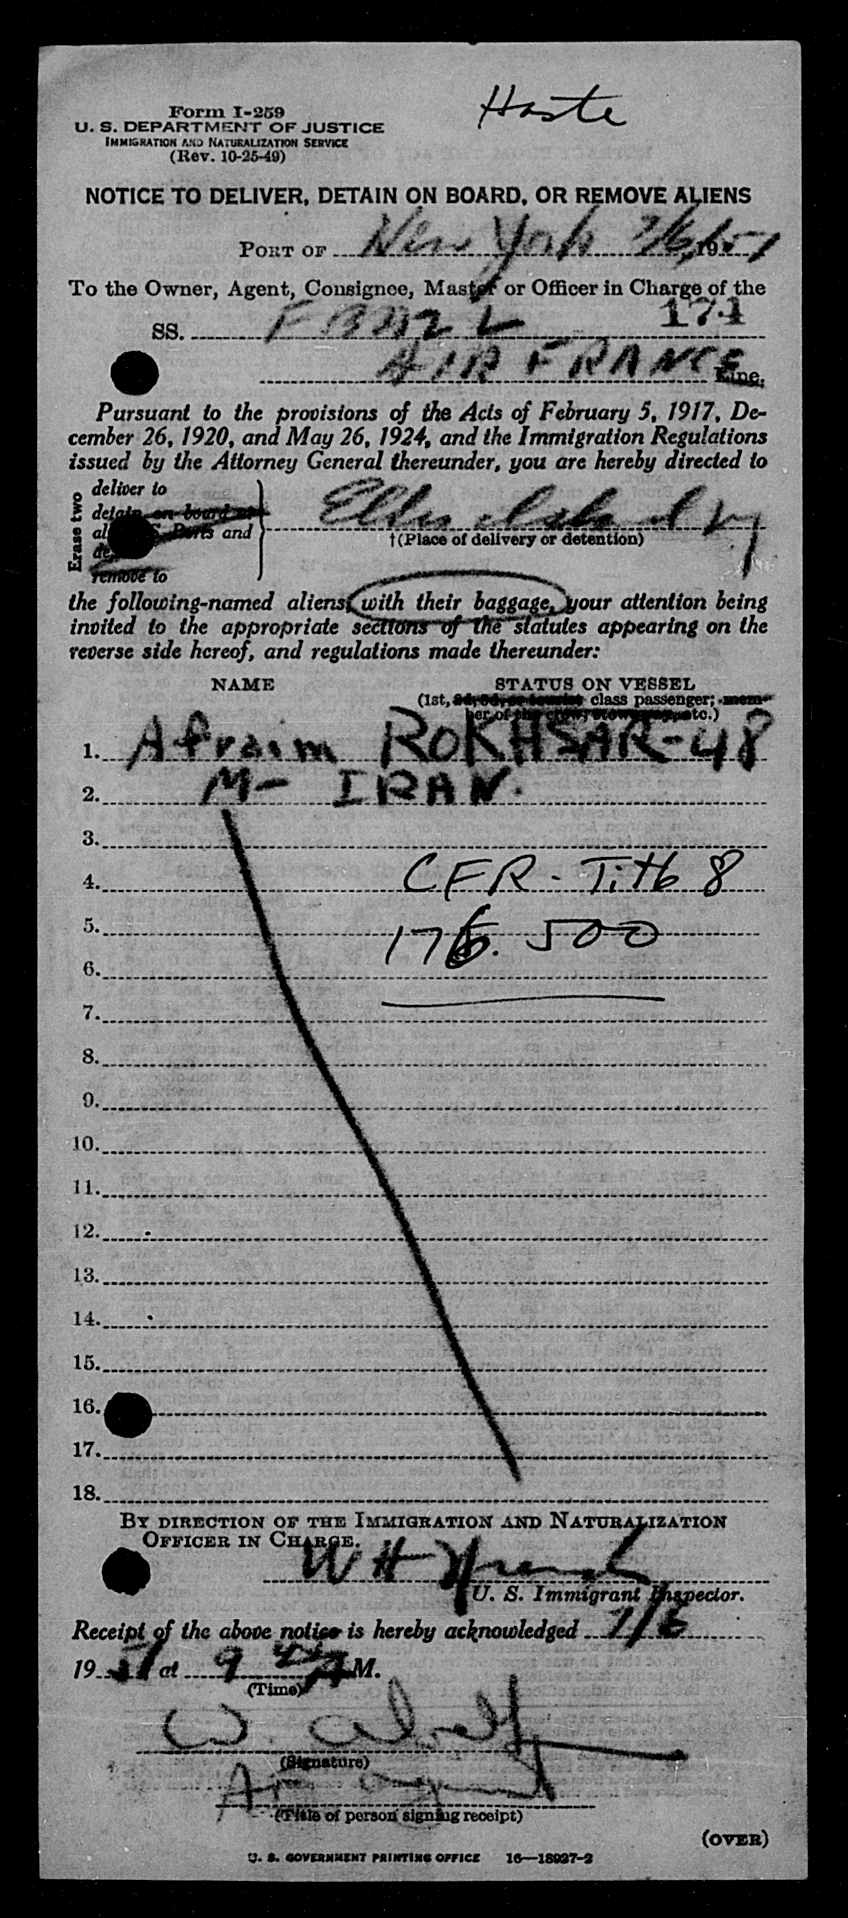 Form I-259
U. S. DEPARTMENT OF JUSTICE
IMMIGRATION AND NATURALIZATION SERVICE
(Rev. 10-25-49)
Haste
NOTICE TO DELIVER, DETAIN ON BOARD, OR REMOVE ALIENS
PORT OF New York 7/6, 1951
To the Owner, Agent, Consignee, Master or Officer in Charge of the
SS. 174
AIR FRANCE Line,
Pursuant to the provisions of the Acts of February 5, 1917, De-
cember 26, 1920, and May 26, 1924, and the Immigration Regulations
issued by the Attorney General thereunder, you are hereby directed to
Erase two
deliver to
detain on board at
Ports and
remove to
Ellis Island NY
†(Place of delivery or detention)
the following-named aliens, with their baggage, your attention being
invited to the appropriate sections of the statutes appearing on the
reverse side hereof, and regulations made thereunder:
NAME STATUS ON VESSEL
(1st, 2d, 3d, or tourist class passenger; mem-
ber of the crew, stowaway, etc.)
1. Afraim ROKHSAR-48
2. M- IRAN.
3.
4. CFR - Title 8
5. 176.500
6.
7.
8.
9.
10.
11.
12.
13.
14.
15.
16.
17.
18.
BY DIRECTION OF THE IMMIGRATION AND NATURALIZATION
OFFICER IN CHARGE.
W H
U. S. Immigrant Inspector.
Receipt of the above notice is hereby acknowledged 7/6
1951 at 9 A M.
(Time)
W.
(Signature)
(Title of person signing receipt)
(OVER)
U. S. GOVERNMENT PRINTING OFFICE 16—18927-2